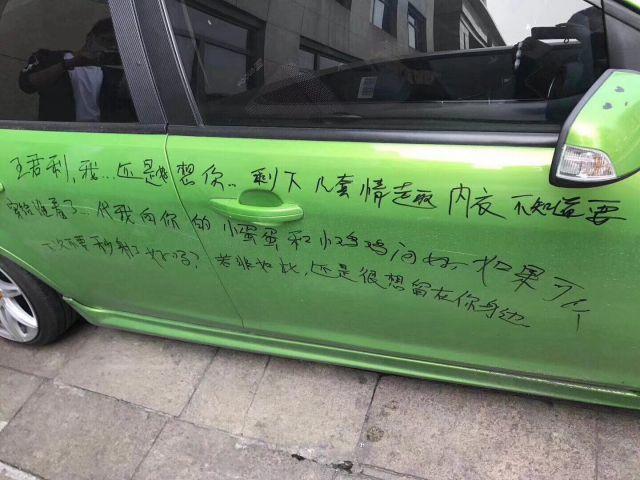 王君利,我...还是想你..剩下几套情趣内衣不知道要
穿给谁看了...代我向你的小蛋蛋和小鸡鸡问好,如果可以
下次不要秒射了好吗?若非如此,还是很想留在你身边.